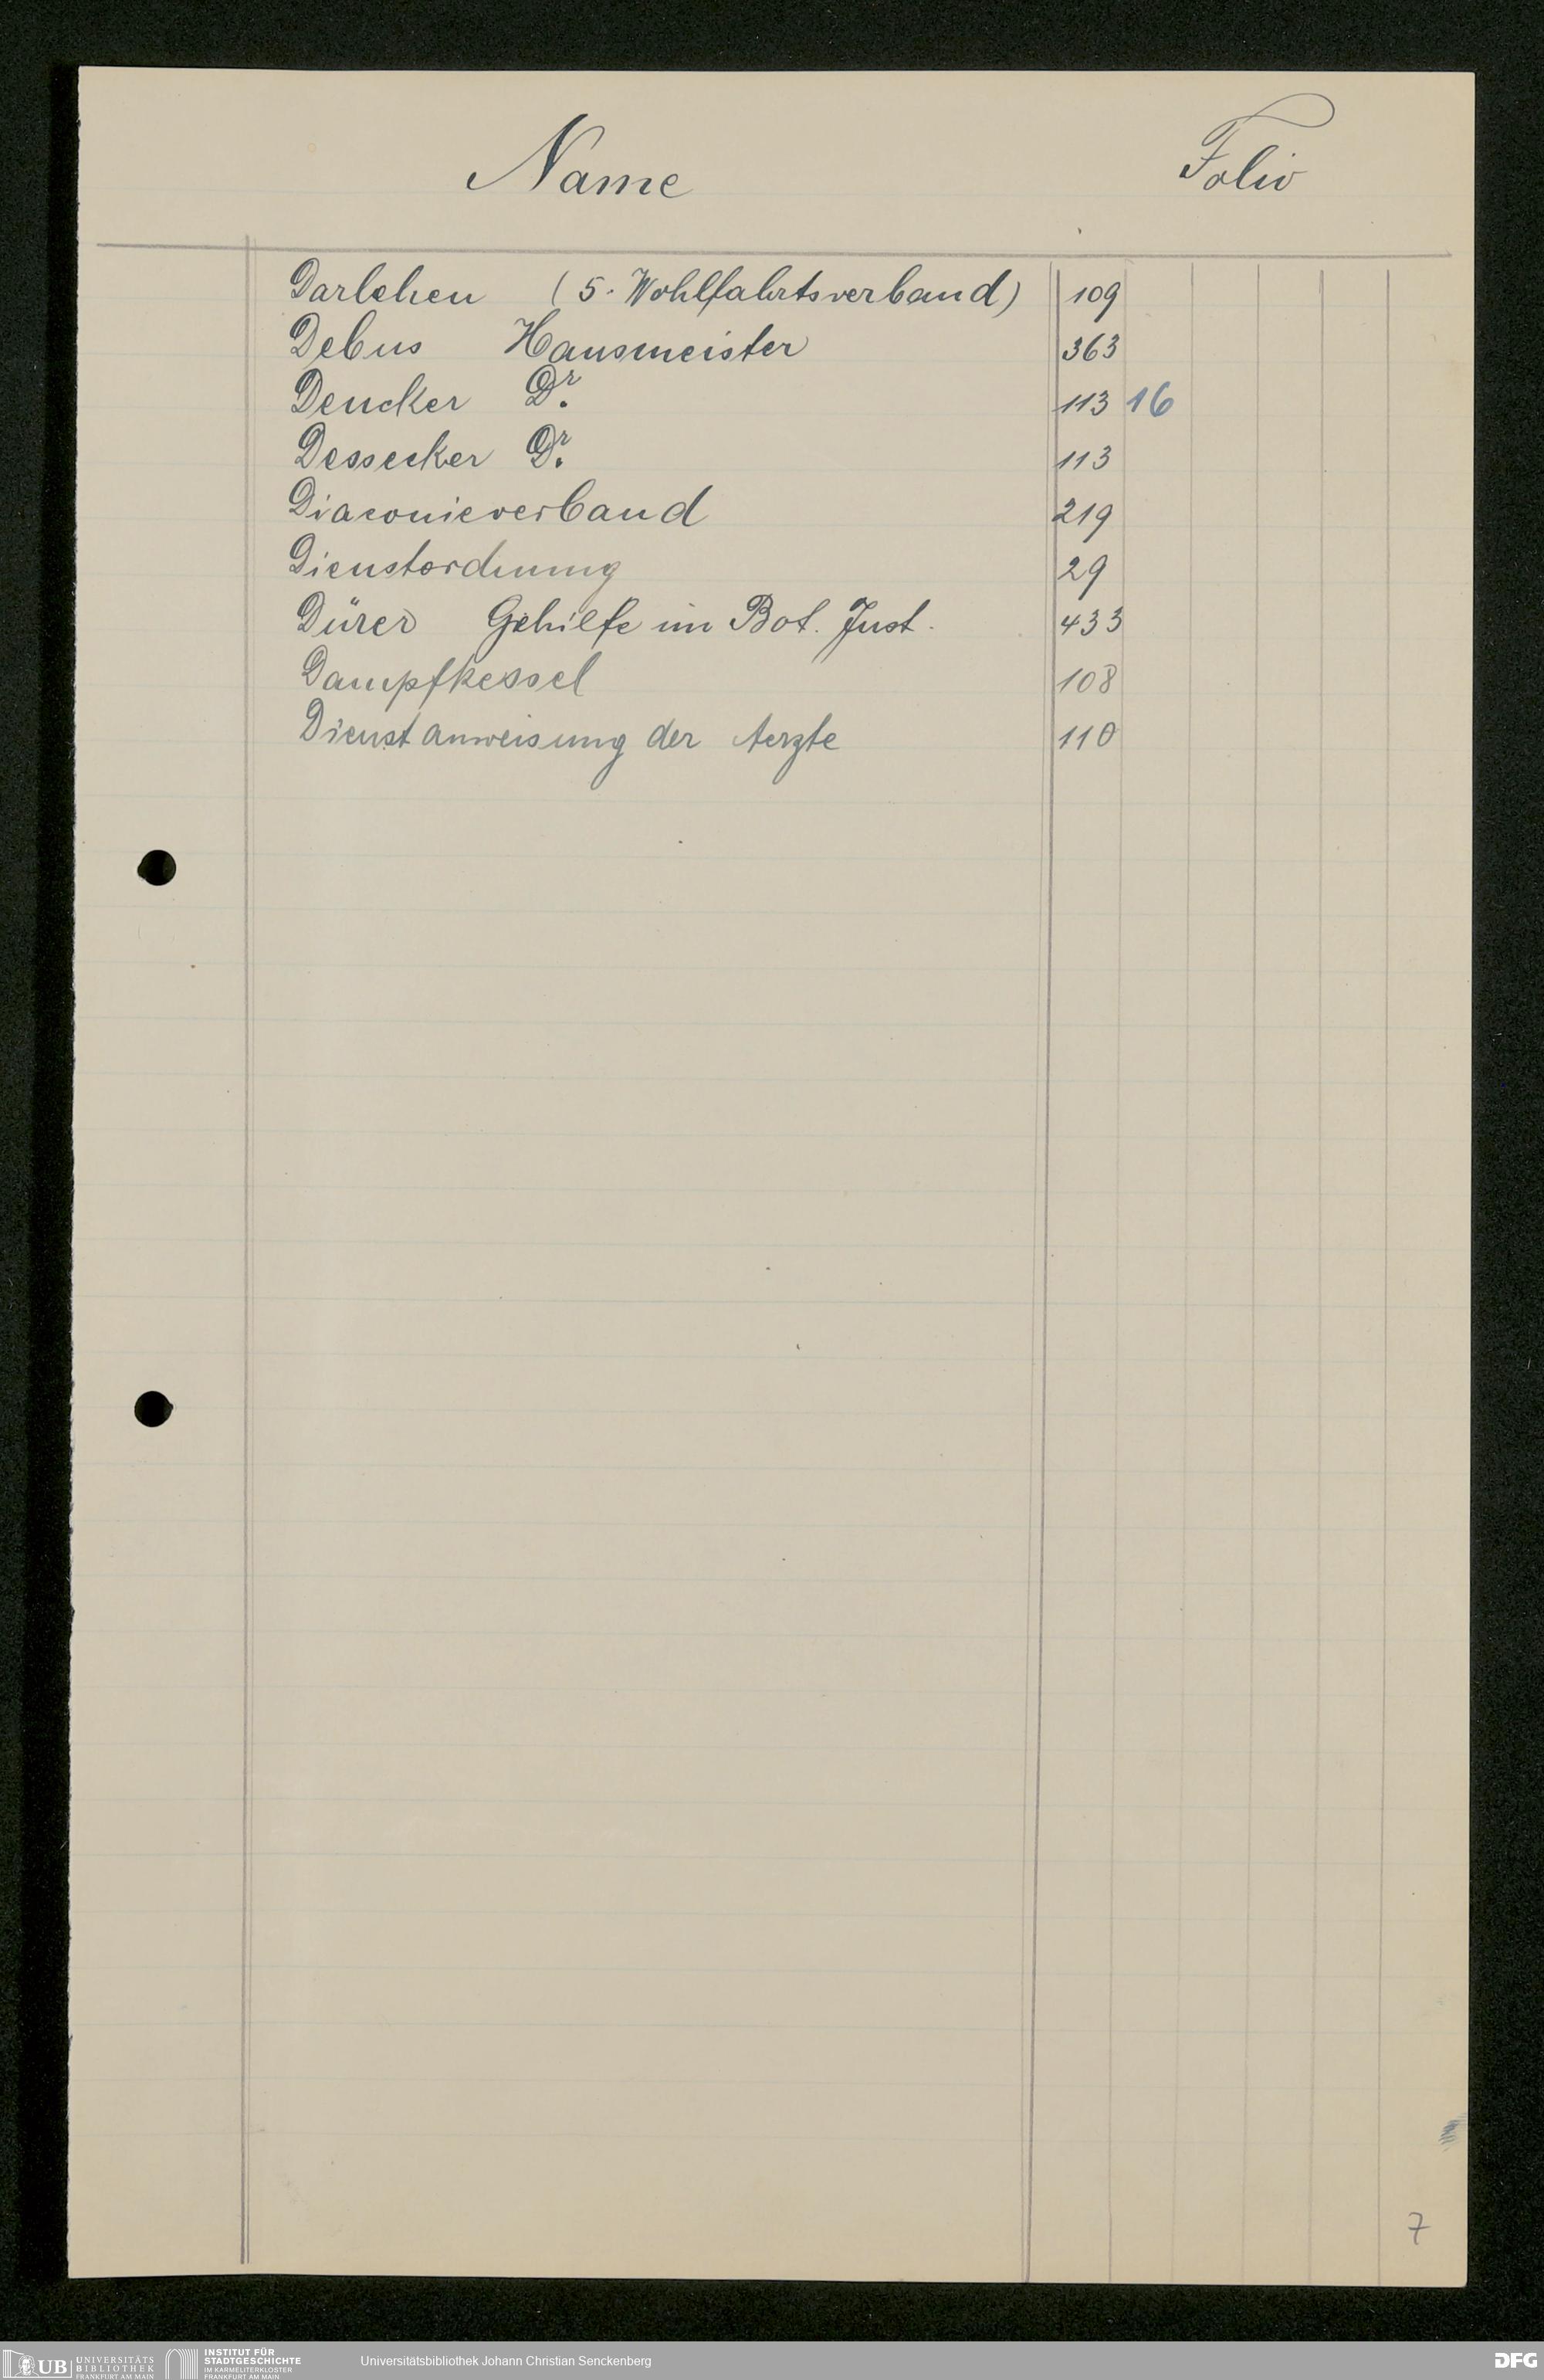 Name Folio
Darlehen (5. Wohlfahrtsverband) 109
Debus Hausmeister 363
Dencker Dr. 113 16
Dessecker Dr. 113
Diaconieverband 219
Dienstordnung 29
Dürer Gehilfe im Bot. Inst. 433
Dampfkessel 108
Dienstanweisung der Aerzte 110
7
UB UNIVERSITÄTS BIBLIOTHEK FRANKFURT AM MAIN
INSTITUT FÜR STADTGESCHICHTE IM KARMELITERKLOSTER FRANKFURT AM MAIN
Universitätsbibliothek Johann Christian Senckenberg
DFG